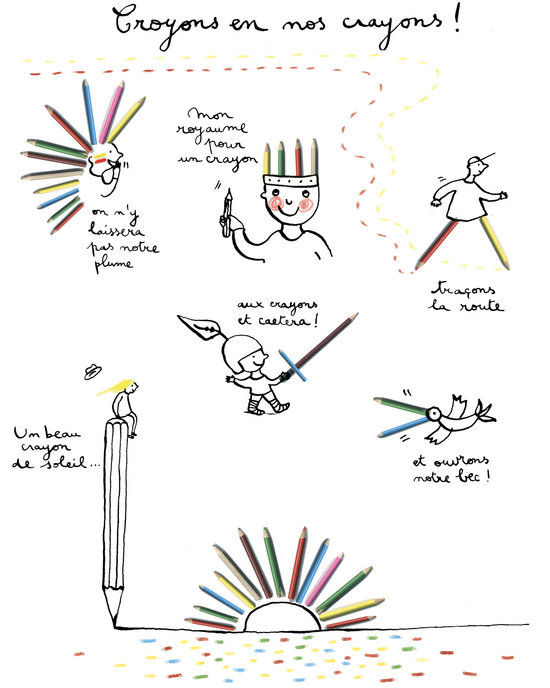 Croyons en nos crayons !
mon
royaume
pour
un crayon
on n'y
laissera
pas notre
plume
traçons
la route
aux crayons
et caetera !
Un beau
crayon
de soleil...
et ouvrons
notre bec !